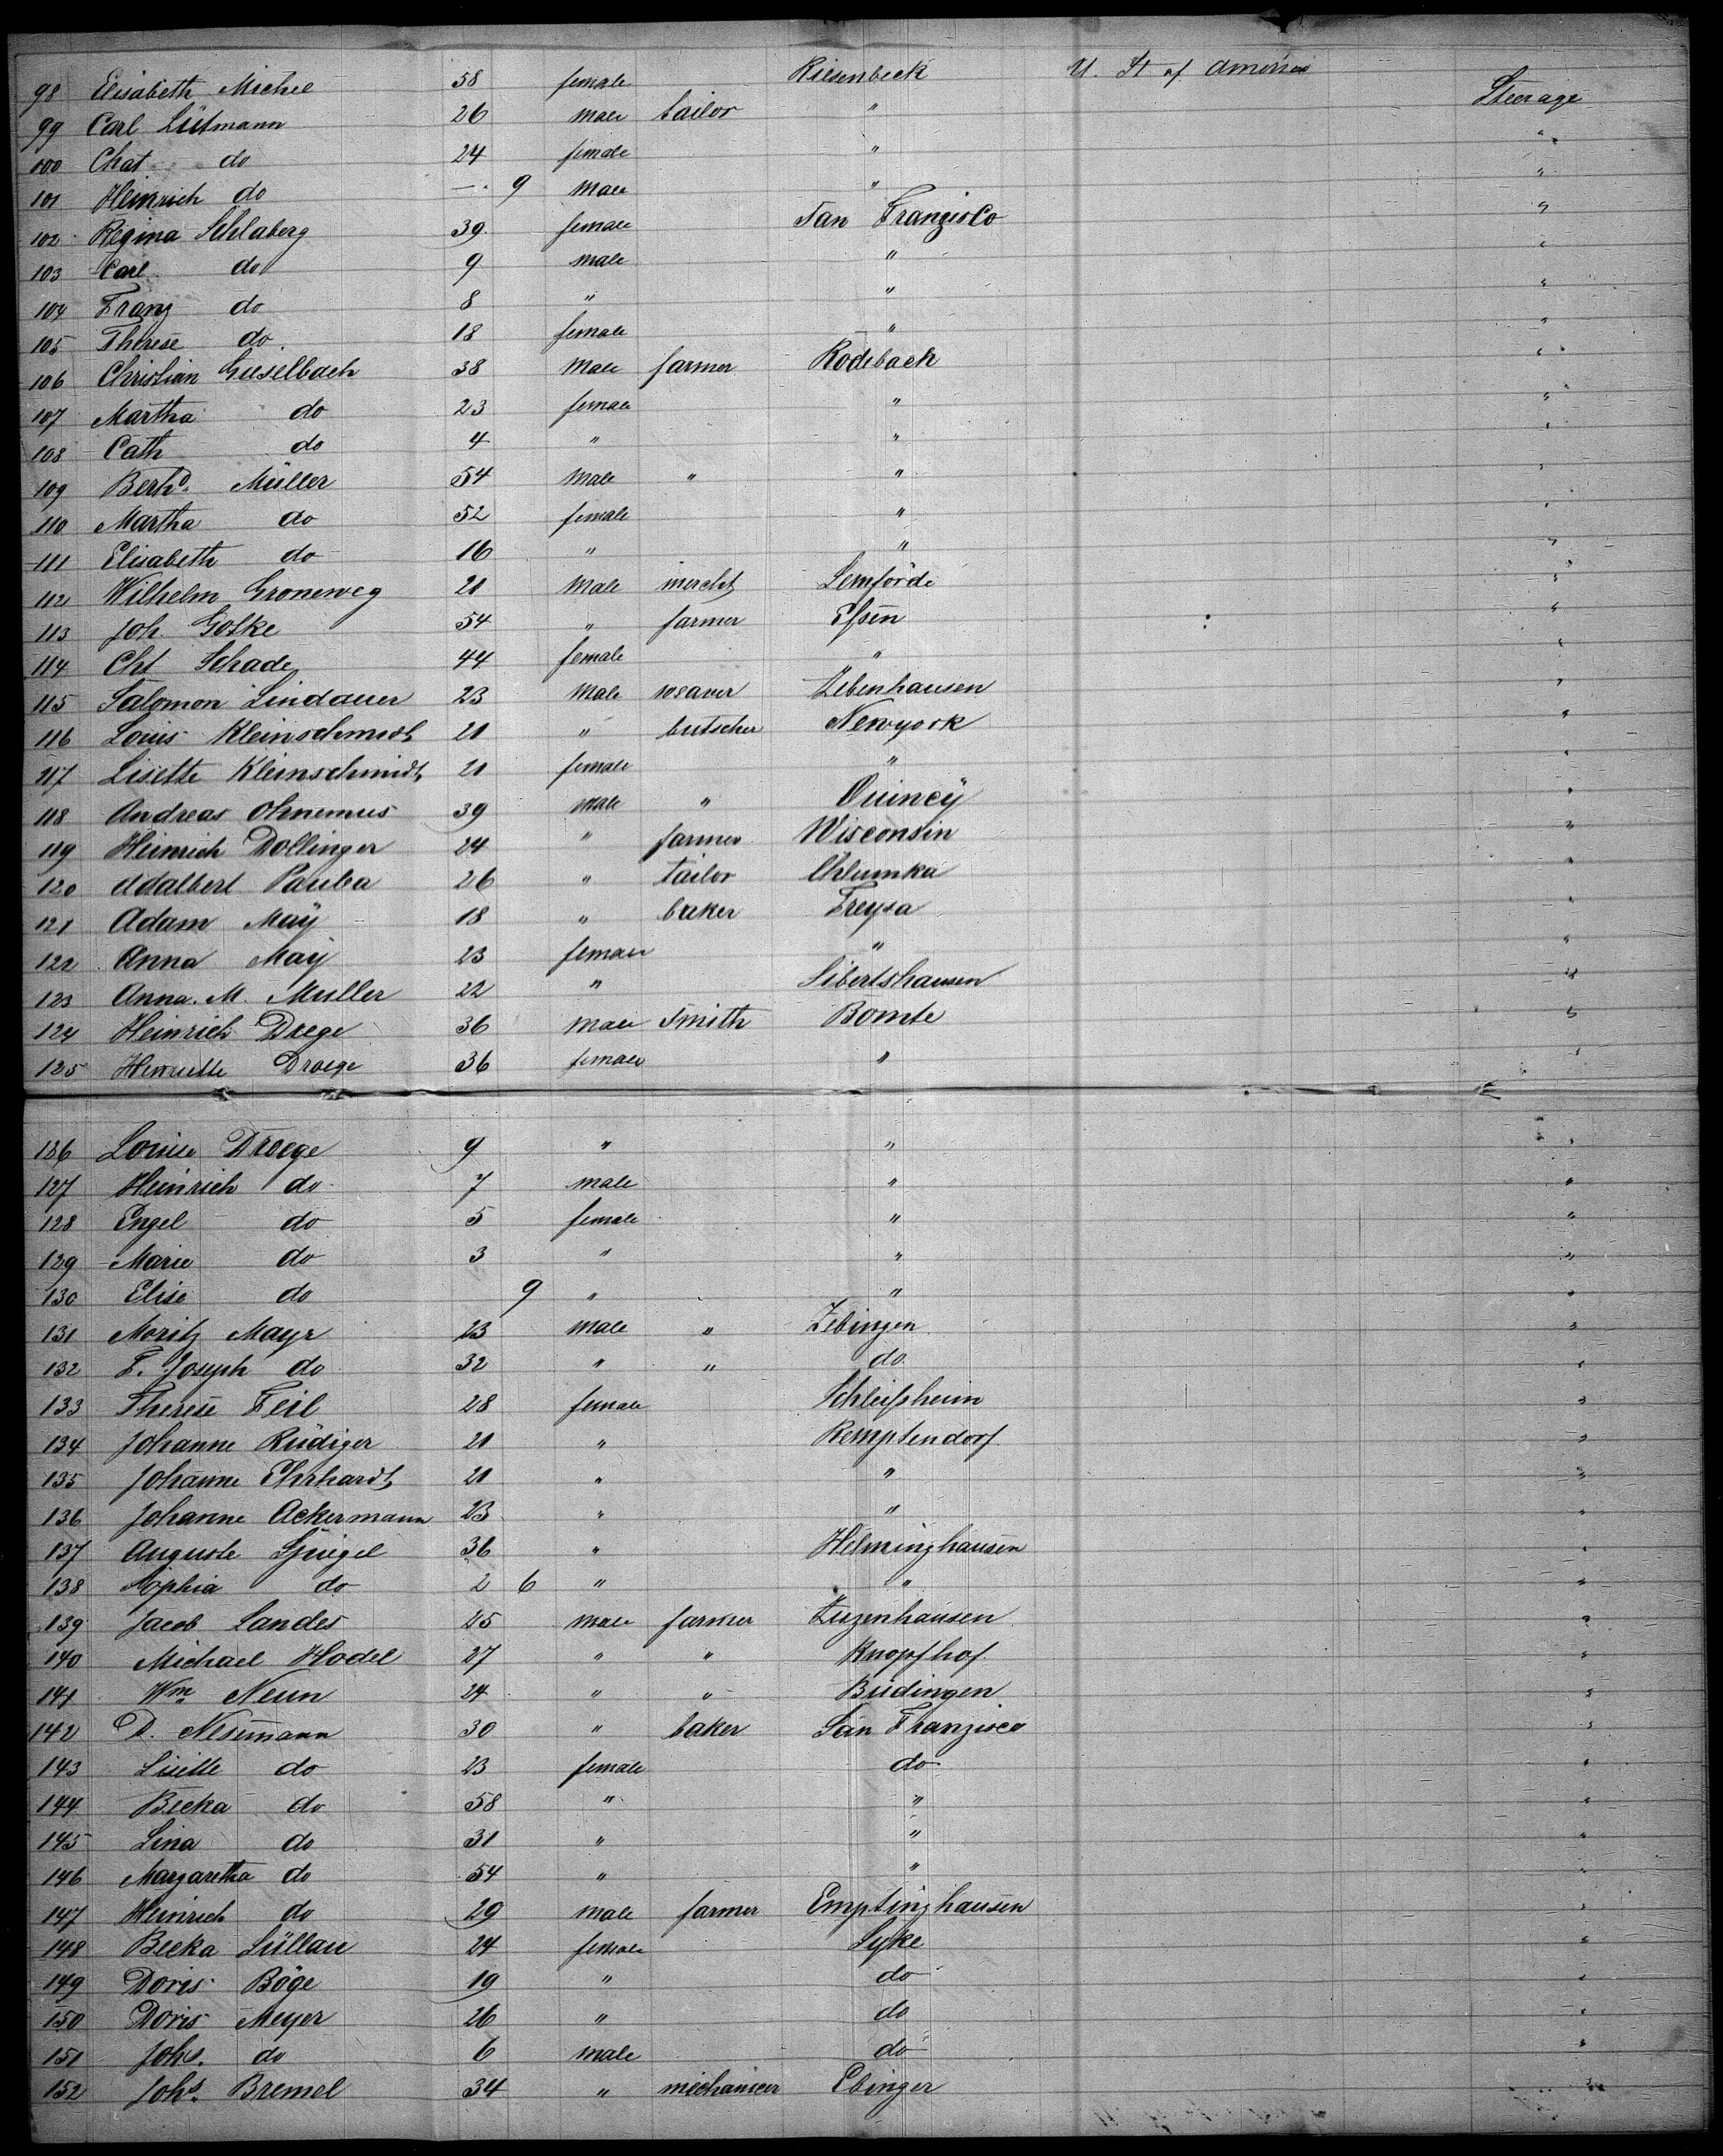 98 Elisabeth Michel 58 female Riesenbeck U. St of America Steerage
99 Carl Lütmann 26 male tailor " "
100 Chat do 24 female " "
101 Heinrich do — 9 male " "
102 Regina Schlaberg 39 female San Franzisco "
103 Carl do 9 male " "
104 Franz do 8 " " "
105 Therese do 18 female " "
106 Christian Gieselbach 38 male farmer Rodebach "
107 Martha do 23 female " "
108 Cath do 4 " " "
109 Berhd. Müller 54 male " " "
110 Martha do 52 female " "
111 Elisabeth do 16 " " "
112 Wilhelm Groneweg 21 male mercht Lemförde "
113 Joh Gotke 54 " farmer Essen "
114 Cht Schade 44 female " "
115 Salomon Lindauer 23 male weaver Jebenhausen "
116 Louis Kleinschmidt 21 " butscher Newyork "
117 Lisette Kleinschmidt 21 female " "
118 Andreas Ohnemus 39 male " Quincy "
119 Heinrich Dollinger 24 " farmer Wisconsin "
120 Adalbert Pauba 26 " tailor Chlumka "
121 Adam Maÿ 18 " baker Treysa "
122 Anna Maÿ 23 female " "
123 Anna. M. Muller 22 " Sibertshausen "
124 Heinrich Drege 36 male Smith Bomte "
125 Henriette Droege 36 female " "
126 Louise Droege 9 " " "
127 Heinrich do 7 male " "
128 Engel do 5 female " "
129 Marie do 3 " " "
130 Elise do 9 " " "
131 Moritz Mayr 23 male " Zebingen "
132 F. Joseph do 32 " " do "
133 Therese Feil 28 female Schleissheim "
134 Johanne Rüdiger 21 " Remptendorf "
135 Johanne Ehrhardt 21 " " "
136 Johanne Ackermann 23 " " "
137 Auguste Spiegel 36 " Helminghausen "
138 Sophia do 2 6 " " "
139 Jacob Landes 25 male farmer Zuzenhausen "
140 Michael Hodel 27 " " Knopfhof "
141 Wm Neun 24 " " Büdingen "
142 D. Nesemann 30 " baker San Franzisco "
143 Lisette do 23 female do "
144 Becka do 58 " " "
145 Lina do 31 " " "
146 Margaretha do 54 " " "
147 Heinrich do 29 male farmer Emptinghausen "
148 Becka Lüllau 24 female Syke "
149 Doris Böge 19 " do "
150 Doris Meyer 26 " do "
151 Johs. do 6 male do "
152 Johs. Bremel 34 " mechanicer Ebinger "